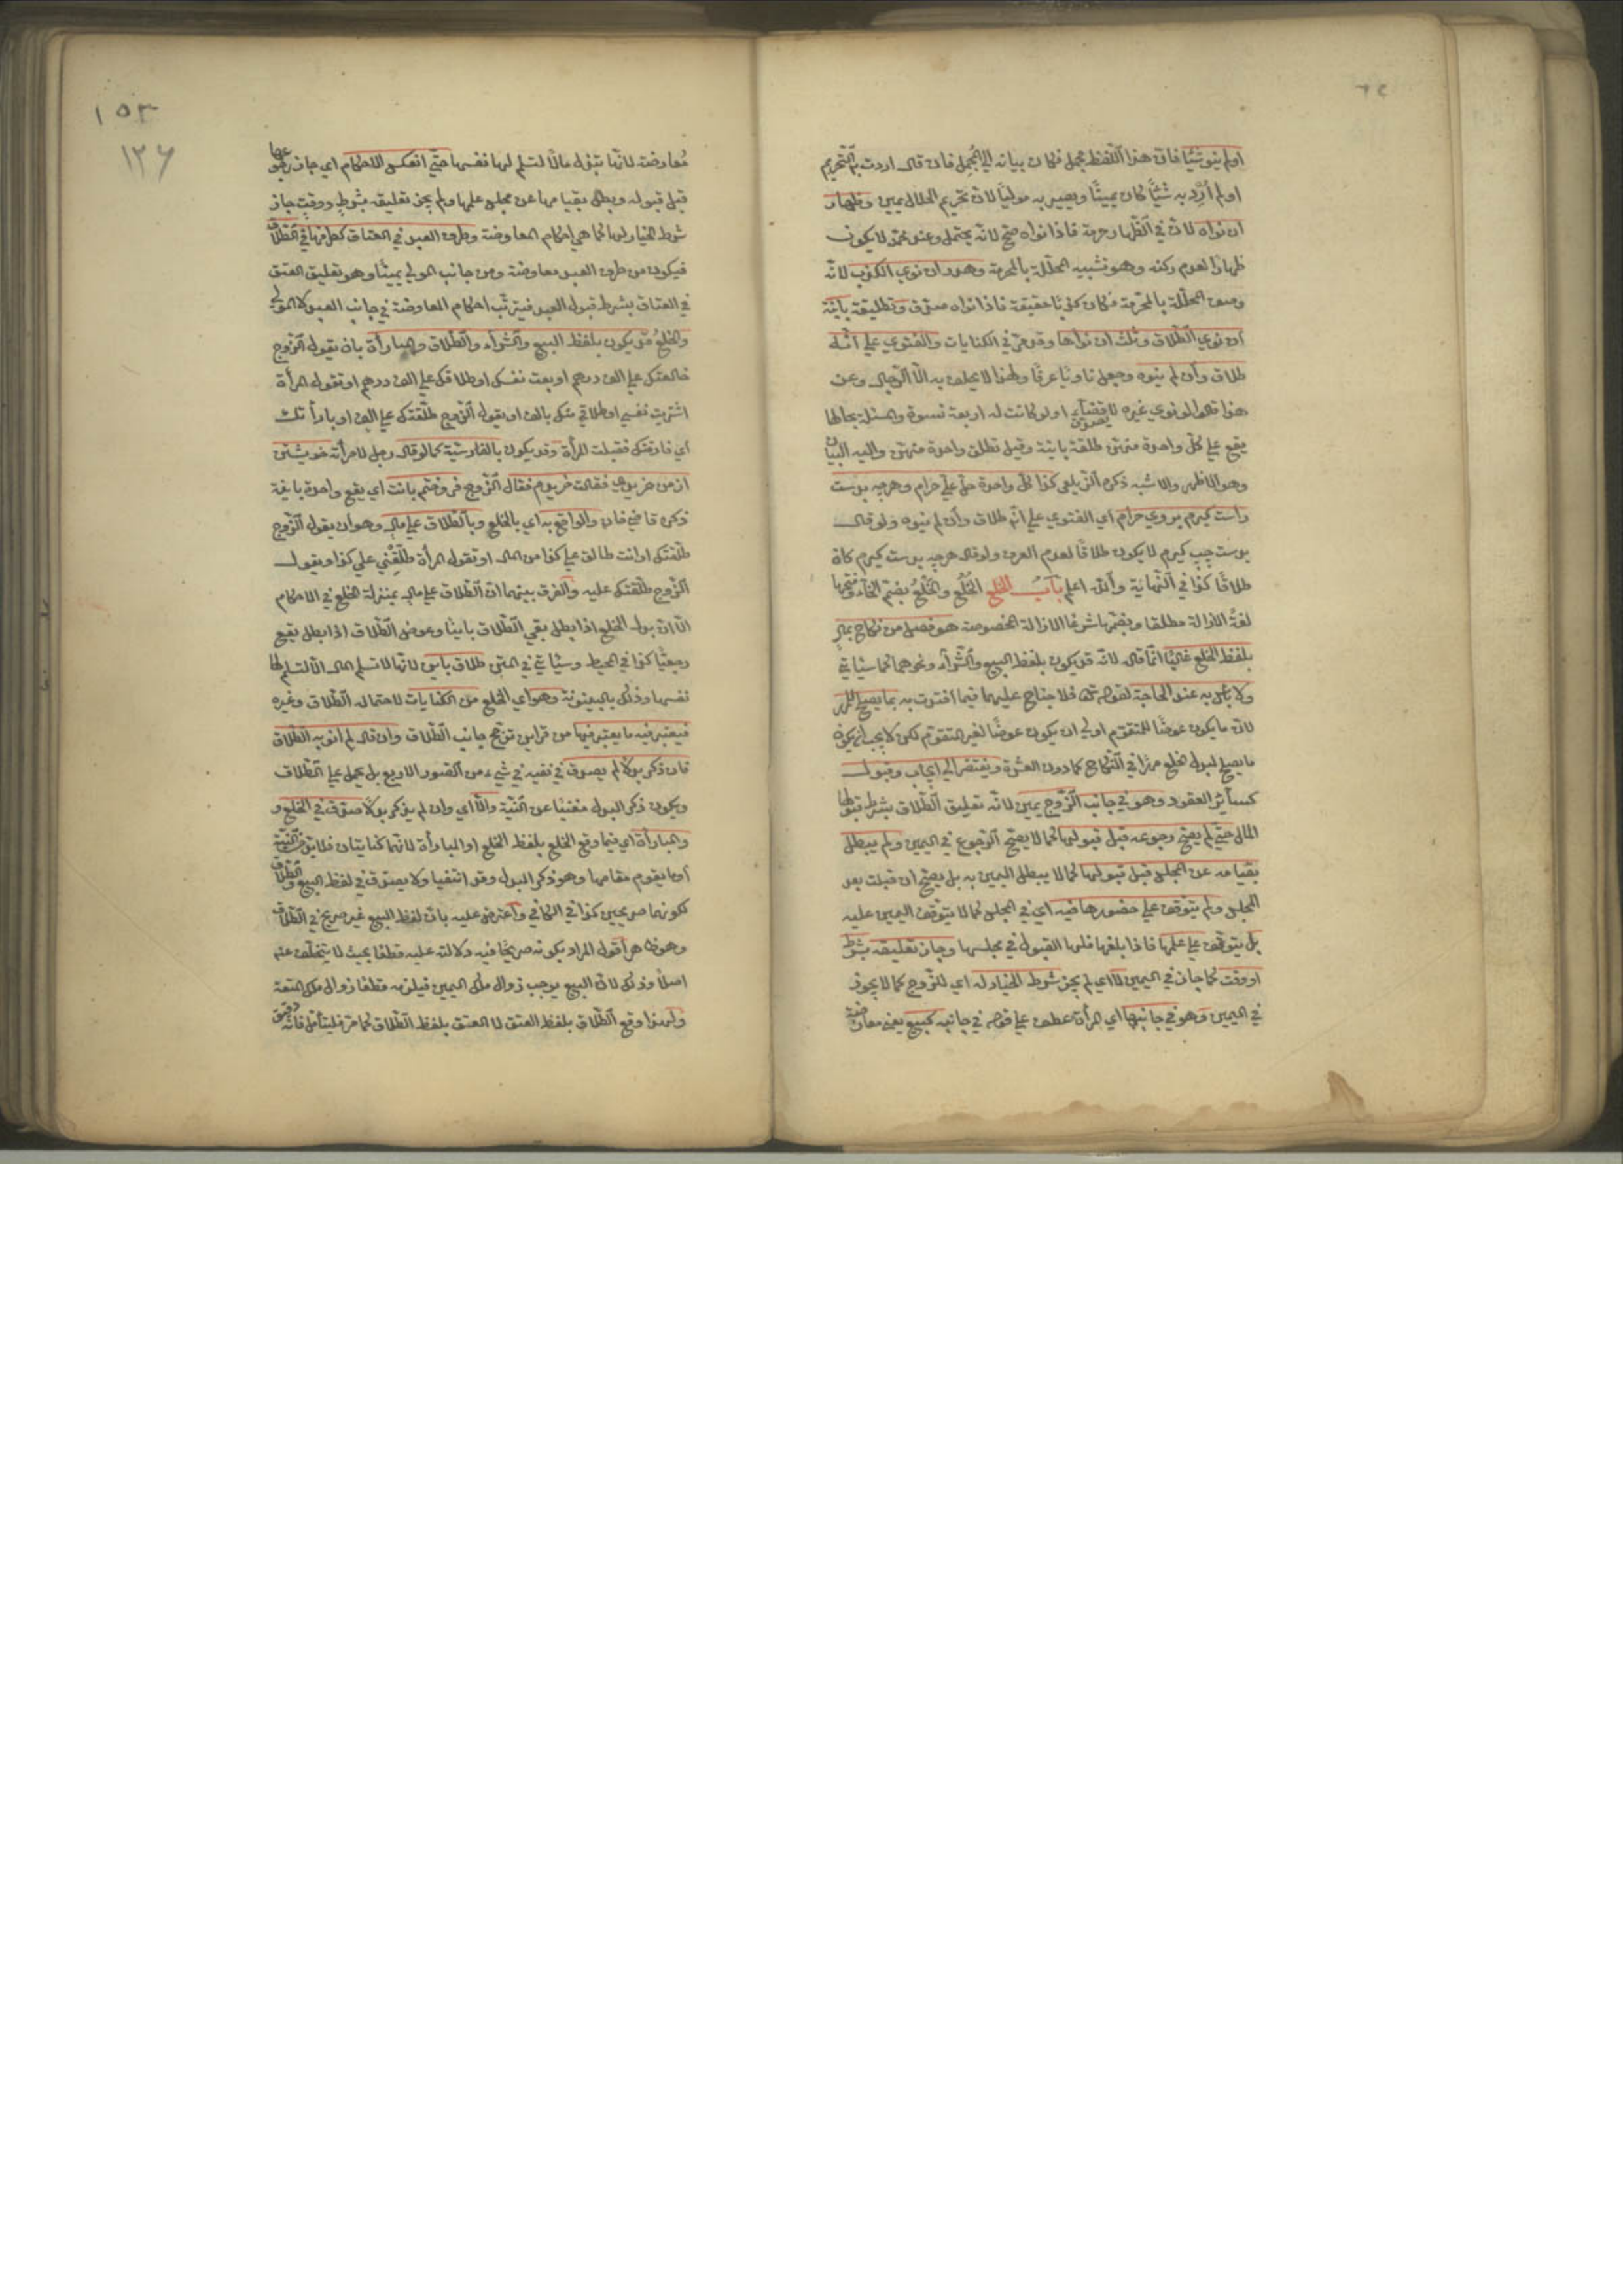 او لم ينو شيئا فان هذا اللفظ مجمل فكان بيانه الى المجمل فان قال اردت به التحريم
او لم أرد به شيئا كان يمينا ويصير به موليا لان تحريم الحلال يمين وظهار
ان نواه لان في الظهار حرمة فاذا نواه صح لانه يحتمله وعند محمد لا يكون
ظهارا لعدم ركنه وهو تشبيه المحللة بالمحرمة وهدر ان نوى الكذب لانه
وصف المحللة بالمحرمة فكان كذبا حقيقة فاذا نواه صدق وتطليقة باينة
ان نوى الطلاق وثلث ان نواها وقد مر في الكنايات والفتوى على انه
طلاق وأن لم ينوه وجعل ناويا عرفا ولهذا لا يحلف به الا الرجال وعن
هذا قالوا لو نوى غيره لا يصدق قضآء ولو كانت له اربعة نسوة والمسئلة بحالها
يقع على كل واحدة منهن طلقة باينة وقيل تطلق واحدة منهن واليه البيان
وهو الاظهر والاشبه ذكره الزيلعي كذا كل واحدة حل علي حرام وهرچه بدست
راست كيرم بروي حرام اي الفتوى على انه طلاق وأن لم ينوه ولو قال
بدست چپ كيرم لا يكون طلاقا لعدم العرف ولو قال هرچه بدست كيرم كان
طلاقا كذا في النهاية والله اعلم باب الخلع الخلع والخلع بضم الخاء وفتحها
لغة الازالة مطلقا وبضمها شرعا الازالة المخصوصة هو فصل من نكاح بمال
بلفظ الخلع غالبا انما قال لانه قد يكون بلفظ البيع والشرآء ونحوهما كما سياتي
ولا بأس به عند الحاجة لقوله تعالى فلا جناح عليهما فيما افتدت به بما يصلح للمهر
لان ما يكون عوضا للمتقوم اولى ان يكون عوضا لغير المتقوم لكن لا يجب ان يكون
ما يصلح لبدل الخلع مهرا في النكاح كما دون العشرة ويفتقر الى ايجاب وقبول
كسائر العقود وهو في جانب الزوج يمين لانه تعليق الطلاق بشرط قبولها
المال حتى لم يصح رجوعه قبل قبولها كما لا يصح الرجوع في اليمين ولم يبطل
بقيامه عن المجلس قبل قبولها كما لا يبطل اليمين به بل يصح ان قبلت بعد
المجلس ولم يتوقف على حضورها فيه اي في المجلس كما لا يتوقف اليمين عليه
بل يتوقف على علمها فاذا بلغها فلها القبول في مجلسها وجاز تعليقه بشرط
او وقت كما جاز في اليمين لا اي لم يجز شرط الخيار له اي للزوج كما لا يجوز
في اليمين وهو في جانبها اي المرأة عطف على قوله في جانبه كبيع يعني معاوضة
١٥٣
١٢٦
معاوضة لانها تبذل مالا لتسلم لها نفسها حتى انعكس الاحكام اي جاز رجوعها
قبل قبوله وبطل بقيامها عن مجلس علمها ولم يجز تعليقه بشرط ووقت جاز
شرط الخيار لها كما هي احكام المعاوضة وطرف العبد في العتاق كطرفها في الطلاق
فيكون من طرف العبد معاوضة ومن جانب المولى يمينا وهو تعليق العتق
في العتاق بشرط قبول العبد فيترتب احكام المعاوضة في جانب العبد لا المولى
والخلع قد يكون بلفظ البيع والشرآء والطلاق والمبارأة بان يقول الزوج
خالعتك على الف درهم او بعت نفسك او طلاقك على الف درهم او تقول المرأة
اشتريت نفسي او طلاقي منك بالف او يقول الزوج طلقتك على الف او بارأتك
اي فارقتك فقبلت المرأة وقد يكون بالفارسية كما لو قال رجل لامرأته خويشتن
از من خريدي فقالت خريدم فقال الزوج فروختم بانت اي يقع واحدة باينة
ذكره قاضيخان والواقع به اي بالخلع وبالطلاق على مال وهو ان يقول الزوج
طلقتك او انت طالق على كذا من المال او تقول المرأة طلقني على كذا ويقول
الزوج طلقتك عليه والفرق بينهما ان الطلاق على مال بمنزلة الخلع في الاحكام
الا ان بدل الخلع اذا بطل بقي الطلاق باينا وعوض الطلاق اذا بطل يقع
رجعيا كذا في المحيط وسياتي في المتن طلاق باين لانها لا تسلم المال الا لتسلم لها
نفسها وذلك بالبينونة وهو اي الخلع من الكنايات لاحتماله الطلاق وغيره
فيعتبر فيه ما يعتبر فيها من قراين ترجح جانب الطلاق وان قال لم انو به الطلاق
فان ذكر بدلا لم يصدق في نفيه في شيء من الصور الاربع بل يحمل على الطلاق
ويكون ذكر البدل مغنيا عن النية والا اي وان لم يذكر بدلا صدق في الخلع و
والمبارأة اي فيما وقع الخلع بلفظ الخلع او المبارأة لانهما كنايتان فلا بد من النية
او ما يقوم مقامها وهو ذكر البدل وقد انتفيا ولا يصدق في لفظ البيع والطلاق
لكونهما صريحين كذا في الكافي واعترض عليه بان لفظ البيع غير صريح في الطلاق
وهو ظاهر أقول المراد بكونه صريحا فيه دلالته عليه قطعا بحيث لا يتخلف عنه
اصلا وذلك لان البيع يوجب زوال ملك اليمين فيلزمه قطعا زوال ملك المتعة
ولهذا وقع الطلاق بلفظ العتق لا العتق بلفظ الطلاق كما مر فليتأمل فانه دقيق